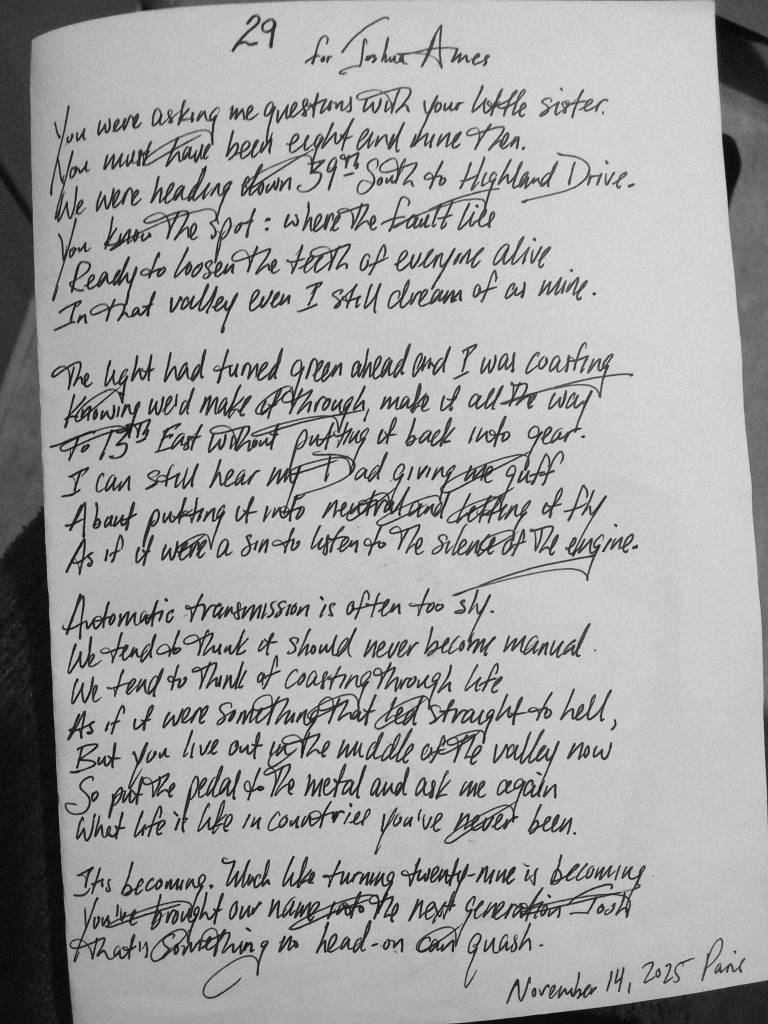 29
for Joshua Ames
You were asking me questions with your little sister.
You must have been eight and nine then.
We were heading down 39th South to Highland Drive.
You know the spot: where the fault lies
Ready to loosen the teeth of everyone alive
In that valley even I still dream of as mine.
The light had turned green ahead and I was coasting
Knowing we'd make it through, make it all the way
To 13th East without putting it back into gear.
I can still hear my Dad giving me guff
About putting it into neutral and letting it fly
As if it were a sin to listen to the silence of the engine.
Automatic transmission is often too sly.
We tend to think it should never become manual.
We tend to think of coasting through life
As if it were something that led straight to hell,
But you live out in the middle of the valley now
So put the pedal to the metal and ask me again
What life is like in countries you've never been.
It's becoming. Much like turning twenty-nine is becoming
You've brought our name into the next generation Josh
That's something no head-on can quash.
November 14, 2025 Paris